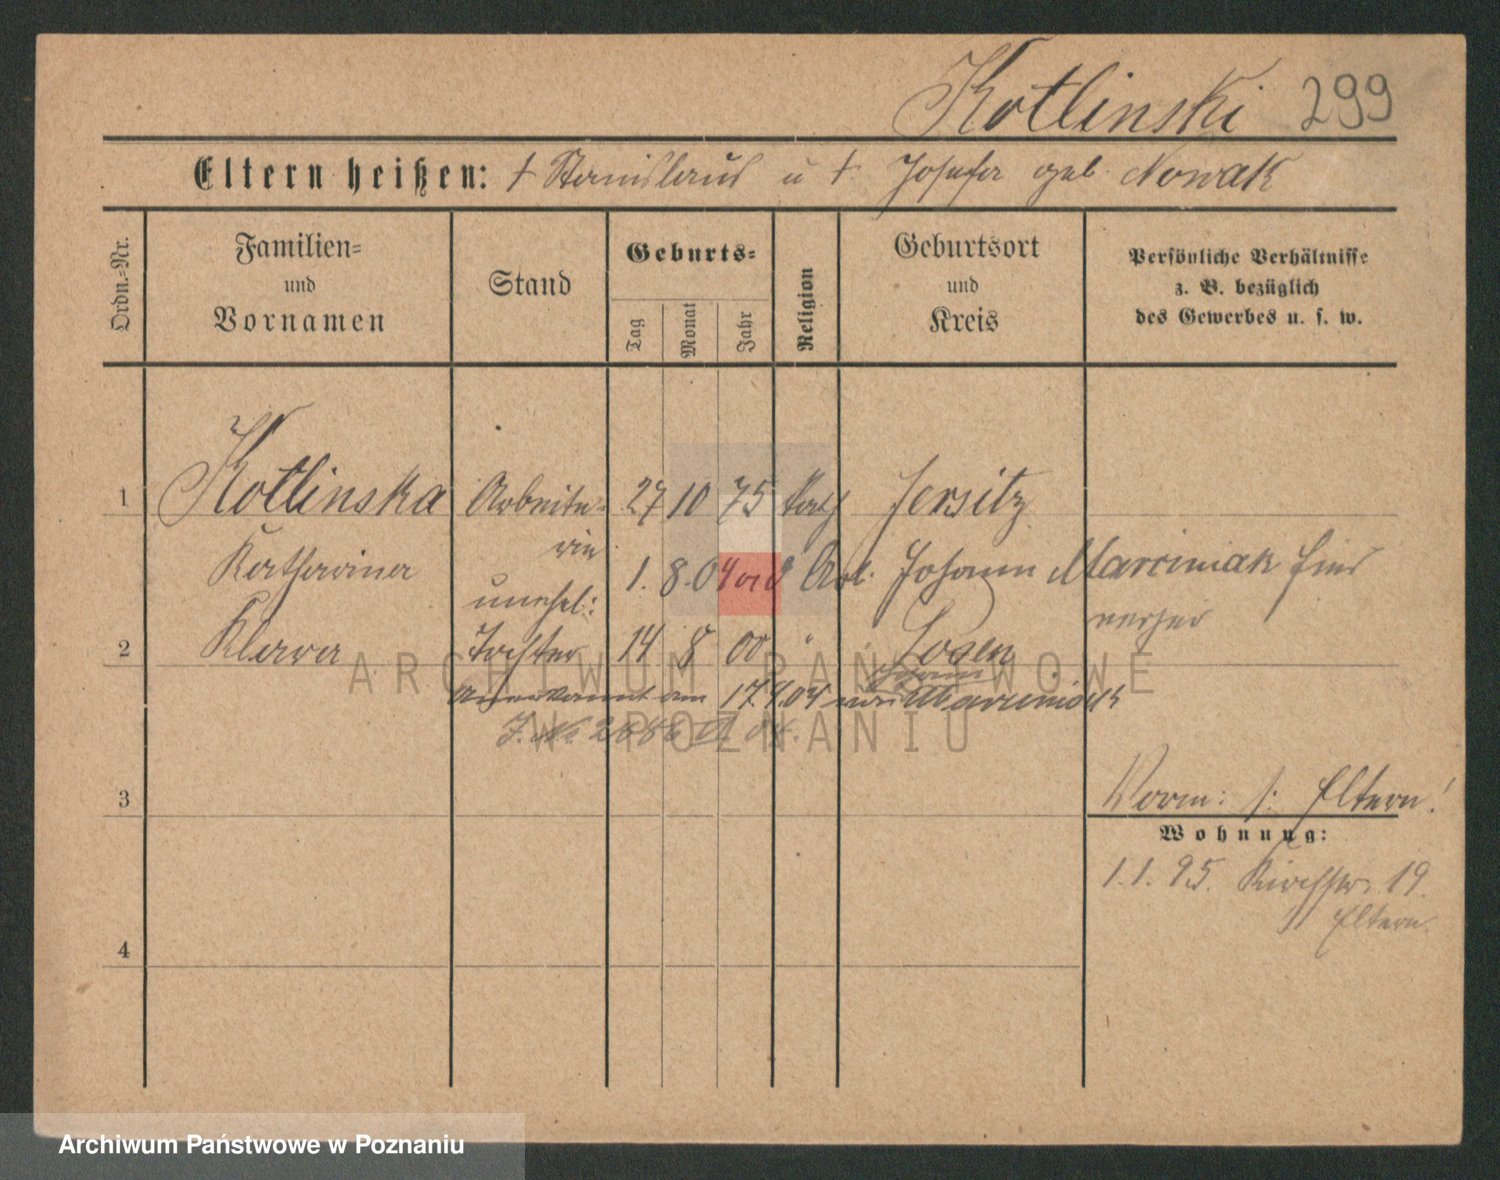 Kotlinski 299
Eltern heißen: † Stanislaus u † Josefa geb. Nowak
Ordn.=Nr.
Familien=
und
Vornamen
Stand
Geburts=
Tag
Monat
Jahr
Religion
Geburtsort
und
Kreis
Persönliche Verhältnisse
z. B. bezüglich
des Gewerbes u. s. w.
1 Kotlinska Arbeite= 27 10 75 kath Jersitz
Katharina rin
1. 8. 04 Johann Marciniak hier
unehel:
2 Klara Tochter 14 8 00 " Posen
Anerkannt am 17.9.04 von Marciniak
J. No
3
Vorm: s: Eltern!
Wohnung:
1.1.95. Kirchstr. 19.
Eltern.
4
ARCHIWUM PAŃSTWOWE
W POZNANIU
Archiwum Państwowe w Poznaniu